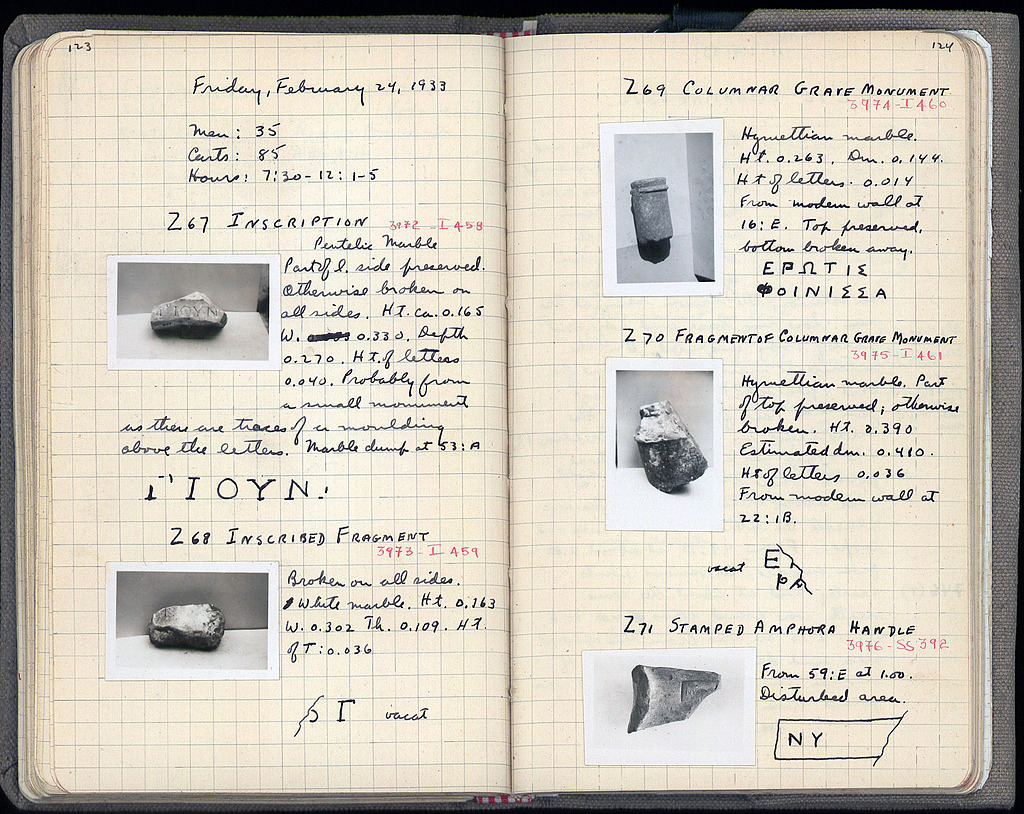 123
Friday, February 24, 1933
Men: 35
Carts: 85
Hours: 7:30-12: 1-5
Z67 INSCRIPTION 3972-I 458
Pentelic Marble
Part of l. side preserved.
Otherwise broken on
all sides. Ht. ca. 0.165
W. 0.330. Depth
0.270. Ht. of letters
0.040. Probably from
a small monument
as there are traces of a moulding
above the letters. Marble dump at 53:A
ΠΙΟΥΝ.
Z68 INSCRIBED FRAGMENT
3973-I 459
Broken on all sides.
White marble. Ht. 0.163
W. 0.302 Th. 0.109. Ht.
of T: 0.036
Τ vacat
124
Z69 COLUMNAR GRAVE MONUMENT
3974-I 460
Hymettian marble.
Ht. 0.263. Dm. 0.144.
Ht of letters. 0.014
From modern wall at
16:E. Top preserved,
bottom broken away.
ΕΡΩΤΙΣ
ΦΟΙΝΙΣΣΑ
Z70 FRAGMENT OF COLUMNAR GRAVE MONUMENT
3975-I 461
Hymettian marble. Part
of top preserved; otherwise
broken. Ht. 0.390
Estimated dm. 0.410.
Ht of letters 0.036
From modern wall at
22:1B.
vacat Ε
Z71 STAMPED AMPHORA HANDLE
3976-SS 392
From 59:E at 1.00.
Disturbed area.
ΝΥ